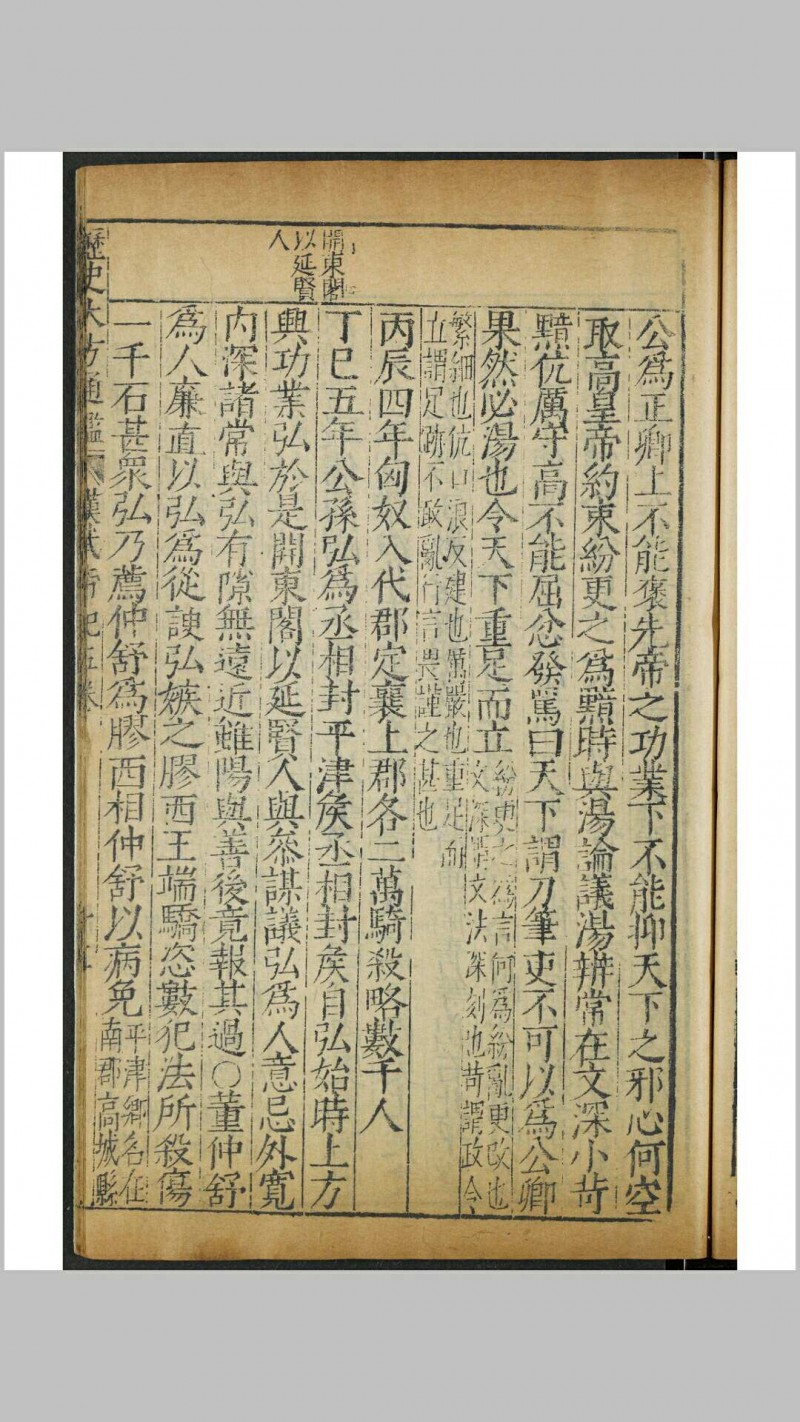 開東閣
以延賢
人
公爲正卿上不能褒先帝之功業下不能抑天下之邪心何空
取高皇帝約束紛更之爲黯時與湯論議湯辨常在文深小苛
黯伉厲守高不能屈忿發罵曰天下謂刀筆吏不可以爲公卿
果然必湯也令天下重足而立
紛更之爲言何爲紛亂更改也
文深謂文法深刻也苛謂政令
繁細也伉口浪反健也厲嚴也重足而
立謂足跡不敢亂行言畏謹之甚也
丙辰四年匈奴入代郡定襄上郡各三萬騎殺略數千人
丁巳五年公孫弘爲丞相封平津矦丞相封矦自弘始時上方
興功業弘於是開東閣以延賢人與叅謀議弘爲人意忌外寛
內深諸常與弘有隙無遠近雖陽與善後竟報其過○董仲舒
爲人廉直以弘爲從諛弘嫉之膠西王端驕恣數犯法所殺傷
二千石甚衆弘乃薦仲舒爲膠西相仲舒以病免
平津鄉名在
南郡高城縣
歷史大方通鑑 漢武帝紀五卷